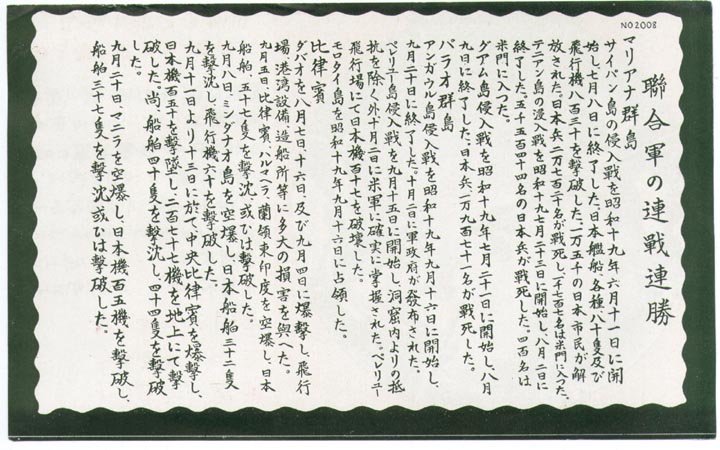 NO2008
聯合軍の連戰連勝
マリアナ群島
サイパン島の侵入戰を昭和十九年六月十一日に開
始し、七月八日に終了した。日本艦船各種八十隻及び
飛行機八百三十を撃破した。一万五千の日本市民が解
放された。日本兵二万七百二十名が戰死し、二千七百七名は米門に入つた。
テニアン島の浸入戰を昭和十九七月二十三日に開始し、八月二日に
終了した。五千五百四十四名の日本兵が戰死した。四百名は
米門に入つた。
グアム島侵入戰を昭和十九年七月二十一日に開始し、八月
九日に終了した。日本兵一万九百七十一名が戰死した。
パラオ群島
アンガウル島侵入戰を昭和十九年九月十六日に開始し、
九月二十日に終了した。十月二日に軍政府が發布された。
ペリリユー島侵入戰を九月十五日に開始し、洞窟內よりの抵
抗を除く外十月二日に米軍に確実に掌握された。ペレリユー
飛行場にて日本機百十七を破壊した。
モロタイ島を昭和十九年九月十六日に占領した。
比律賓
ダバオを八月七日、十六日及び九月四日に爆擊し、飛行
場港湾設備造船所等に多大の損害を與へた。
九月五日、比律賓、ハルマヘラ、蘭領東印度を空爆し、日本
船舶五十七隻を擊沈或ひは擊破した。
九月八日、ミンダナオ島を空爆し、日本船舶三十二隻
を擊沈し、飛行機六十を擊破した。
九月十一日より十三日に於て中央比律賓を爆擊し、
日本機百五十を擊墜し、二百七十七機を地上にて擊
破した。尚、船舶四十隻を擊沈し、四十四隻を擊破
した。
九月二十日、マニラを空爆し、日本機百五機を擊破し、
船舶三十七隻を擊沈或ひは擊破した。